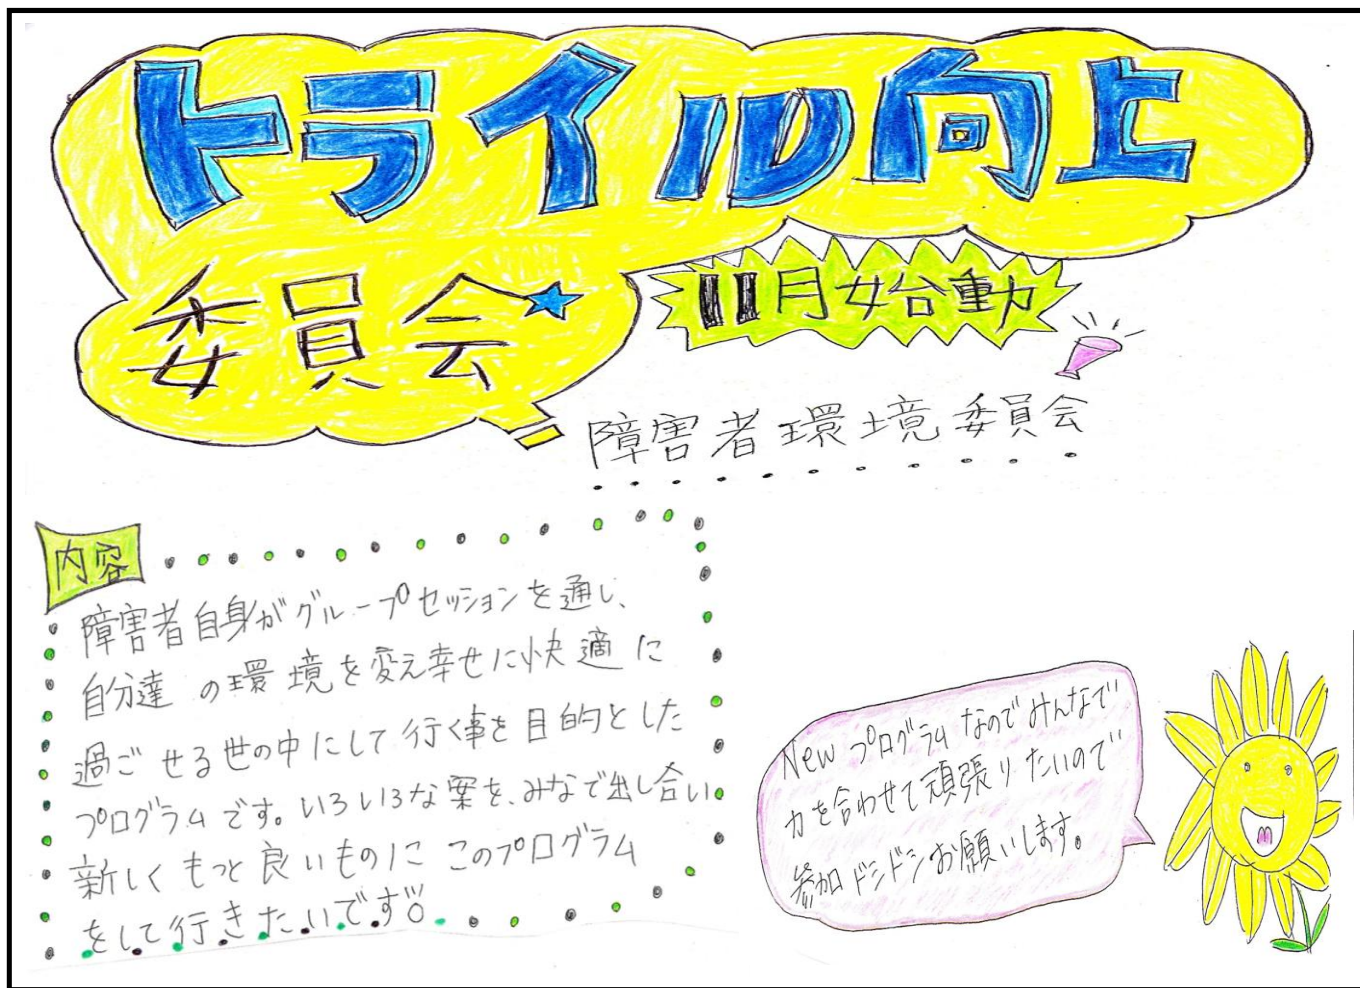 トライル向上
委員会
11月始動
障害者環境委員会
内容
障害者自身がグループセッションを通し、
自分達の環境を変え幸せに快適に
過ごせる世の中にして行く事を目的とした
プログラムです。いろいろな案を、みなで出し合い
新しくもっと良いものにこのプログラム
をして行きたいです
Newプログラムなのでみんなで
力を合わせて頑張りたいので
参加ドシドシお願いします。